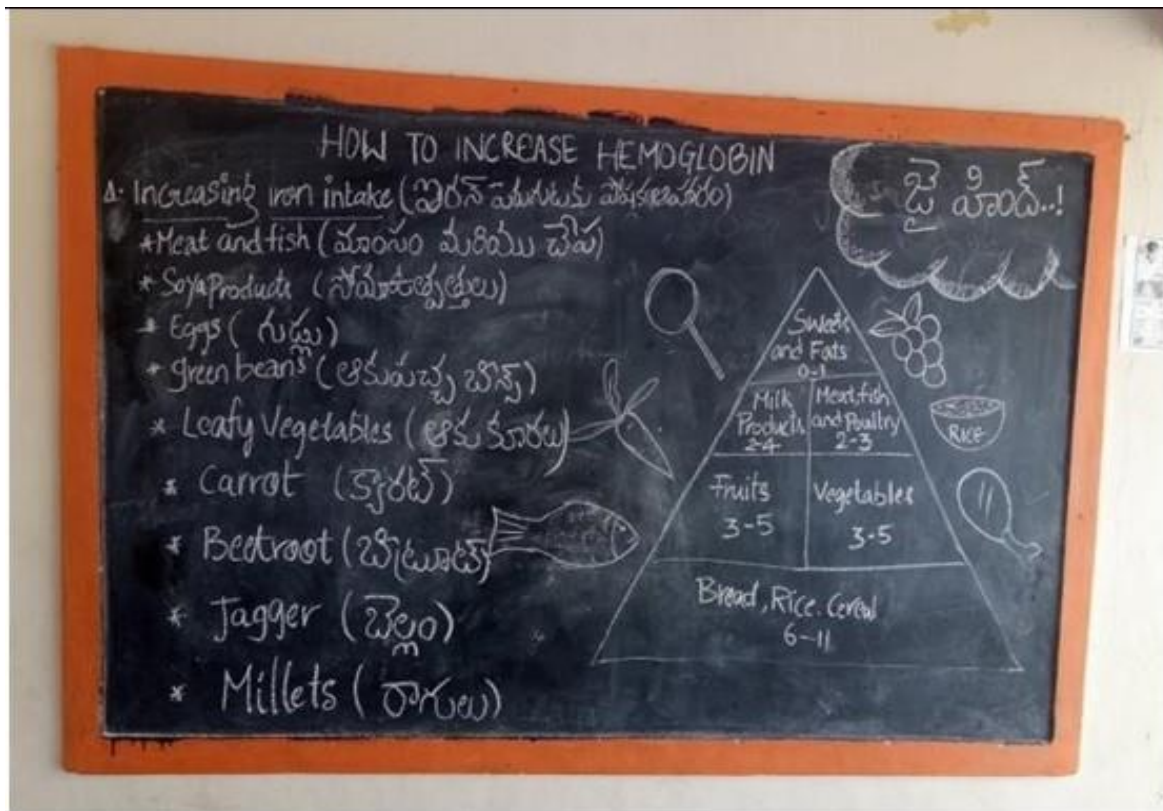 HOW TO INCREASE HEMOGLOBIN
Increasing iron intake (ఐరన్
* Meat and fish (మాంసం మరియు చేప)
* Soya Products (సోయాఉత్పత్తులు)
* Eggs (గుడ్లు)
* green beans (ఆకుపచ్చ బీన్స్)
* Leafy Vegetables (ఆకు కూరలు)
* Carrot (క్యారట్)
* Beetroot (బీట్రూట్)
* Jagger (బెల్లం)
* Millets (రాగులు)
జై హింద్..!
Sweets
and Fats
0-1
Milk
Products
2-4
Meat, fish
and Poultry
2-3
Fruits
3-5
Vegetables
3-5
Bread, Rice. Cereal
6-11
RICE